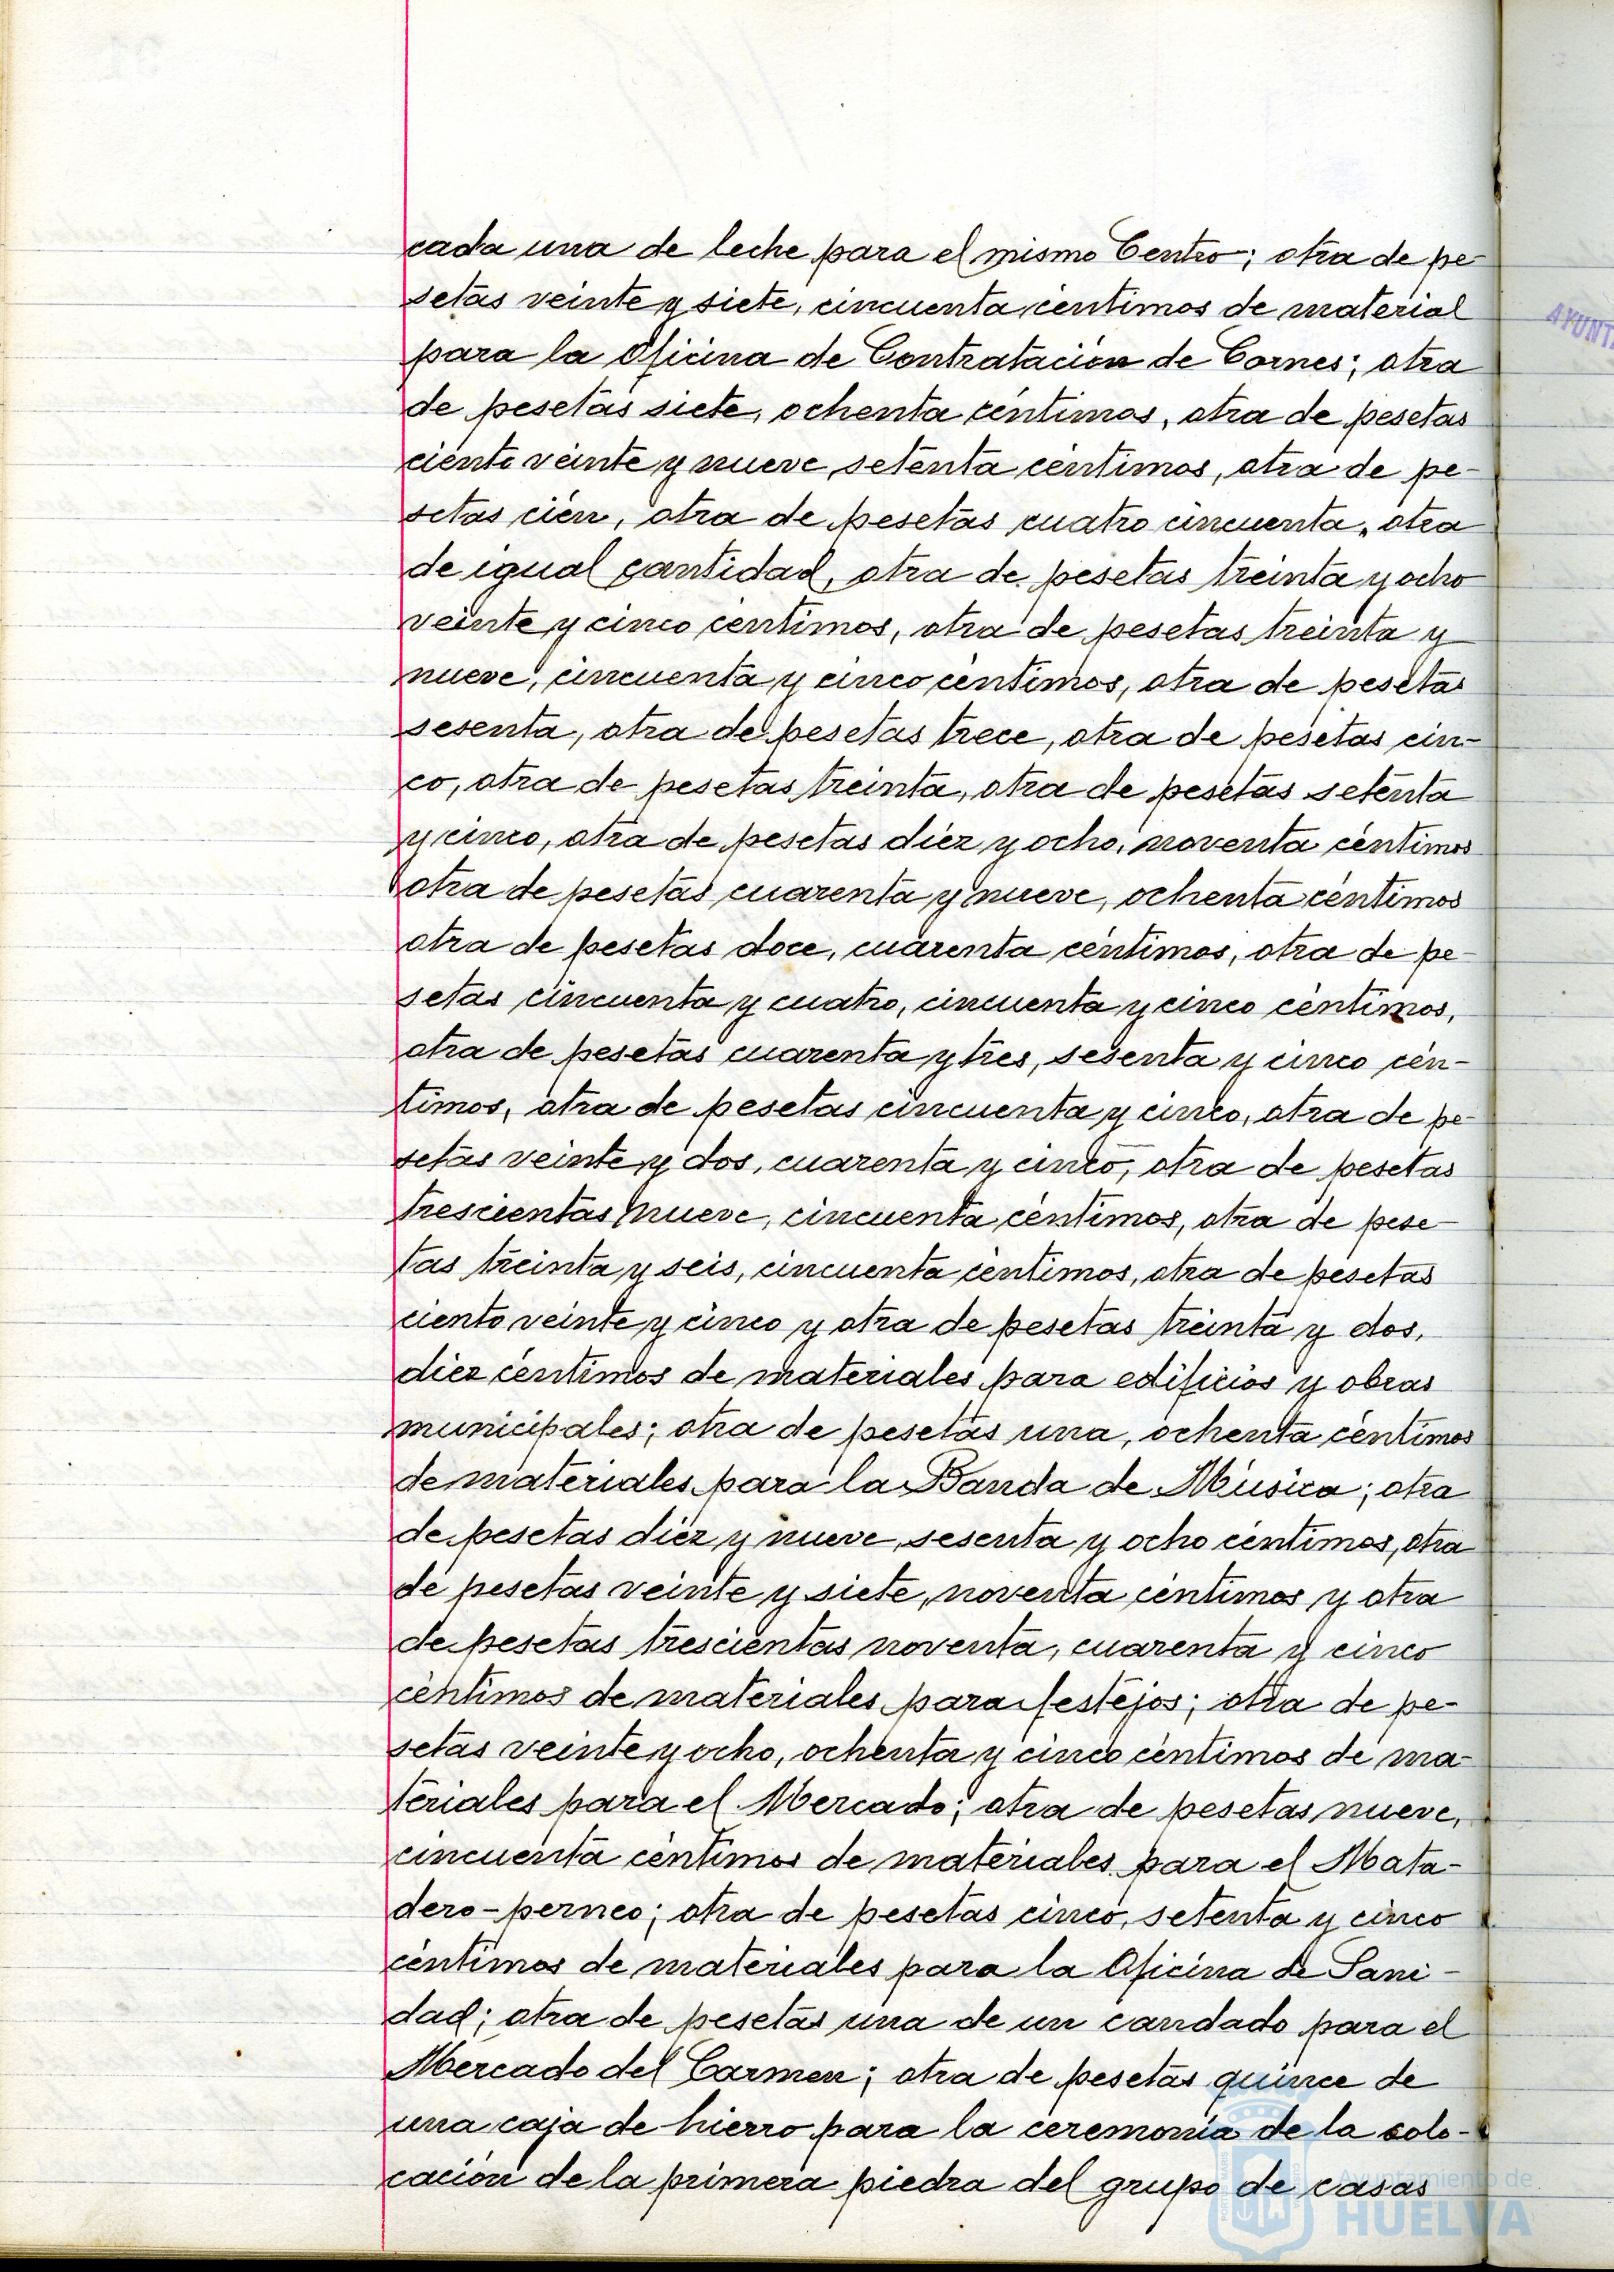 cada una de leche para el mismo Centro; otra de pe-
setas veinte y siete, cincuenta céntimos de material
para la Oficina de Contratación de Carnes; otra
de pesetas siete, ochenta céntimos, otra de pesetas
ciento veinte y nueve, setenta céntimos, otra de pe-
setas cién, otra de pesetas cuatro cincuenta, otra
de igual cantidad, otra de pesetas treinta y ocho
veinte y cinco céntimos, otra de pesetas treinta y
nueve, cincuenta y cinco céntimos, otra de pesetas
sesenta, otra de pesetas trece, otra de pesetas cin-
co, otra de pesetas treinta, otra de pesetas setenta
y cinco, otra de pesetas diéz y ocho, noventa céntimos
otra de pesetas cuarenta y nueve, ochenta céntimos
otra de pesetas doce, cuarenta céntimos, otra de pe-
setas cincuenta y cuatro, cincuenta y cinco céntimos,
otra de pesetas cuarenta y tres, sesenta y cinco cén-
timos, otra de pesetas cincuenta y cinco, otra de pe-
setas veinte y dos, cuarenta y cinco, otra de pesetas
trescientas nueve, cincuenta céntimos, otra de pese-
tas treinta y seis, cincuenta céntimos, otra de pesetas
ciento veinte y cinco y otra de pesetas treinta y dos,
diez céntimos de materiales para edificios y obras
municipales; otra de pesetas una, ochenta céntimos
de materiales para la Banda de Música; otra
de pesetas diéz y nueve, sesenta y ocho céntimos, otra
de pesetas veinte y siete, noventa céntimos y otra
de pesetas trescientas noventa, cuarenta y cinco
céntimos de materiales para festejos; otra de pe-
setas veinte y ocho, ochenta y cinco céntimos de ma-
teriales para el Mercado; otra de pesetas nueve,
cincuenta céntimos de materiales para el Mata-
dero-perneo; otra de pesetas cinco, setenta y cinco
céntimos de materiales para la Oficina de Sani-
dad; otra de pesetas una de un candado para el
Mercado del Carmen; otra de pesetas quince de
una caja de hierro para la ceremonia de la colo-
cación de la primera piedra del grupo de casas
AYUNT
Ayuntamiento de
HUELVA